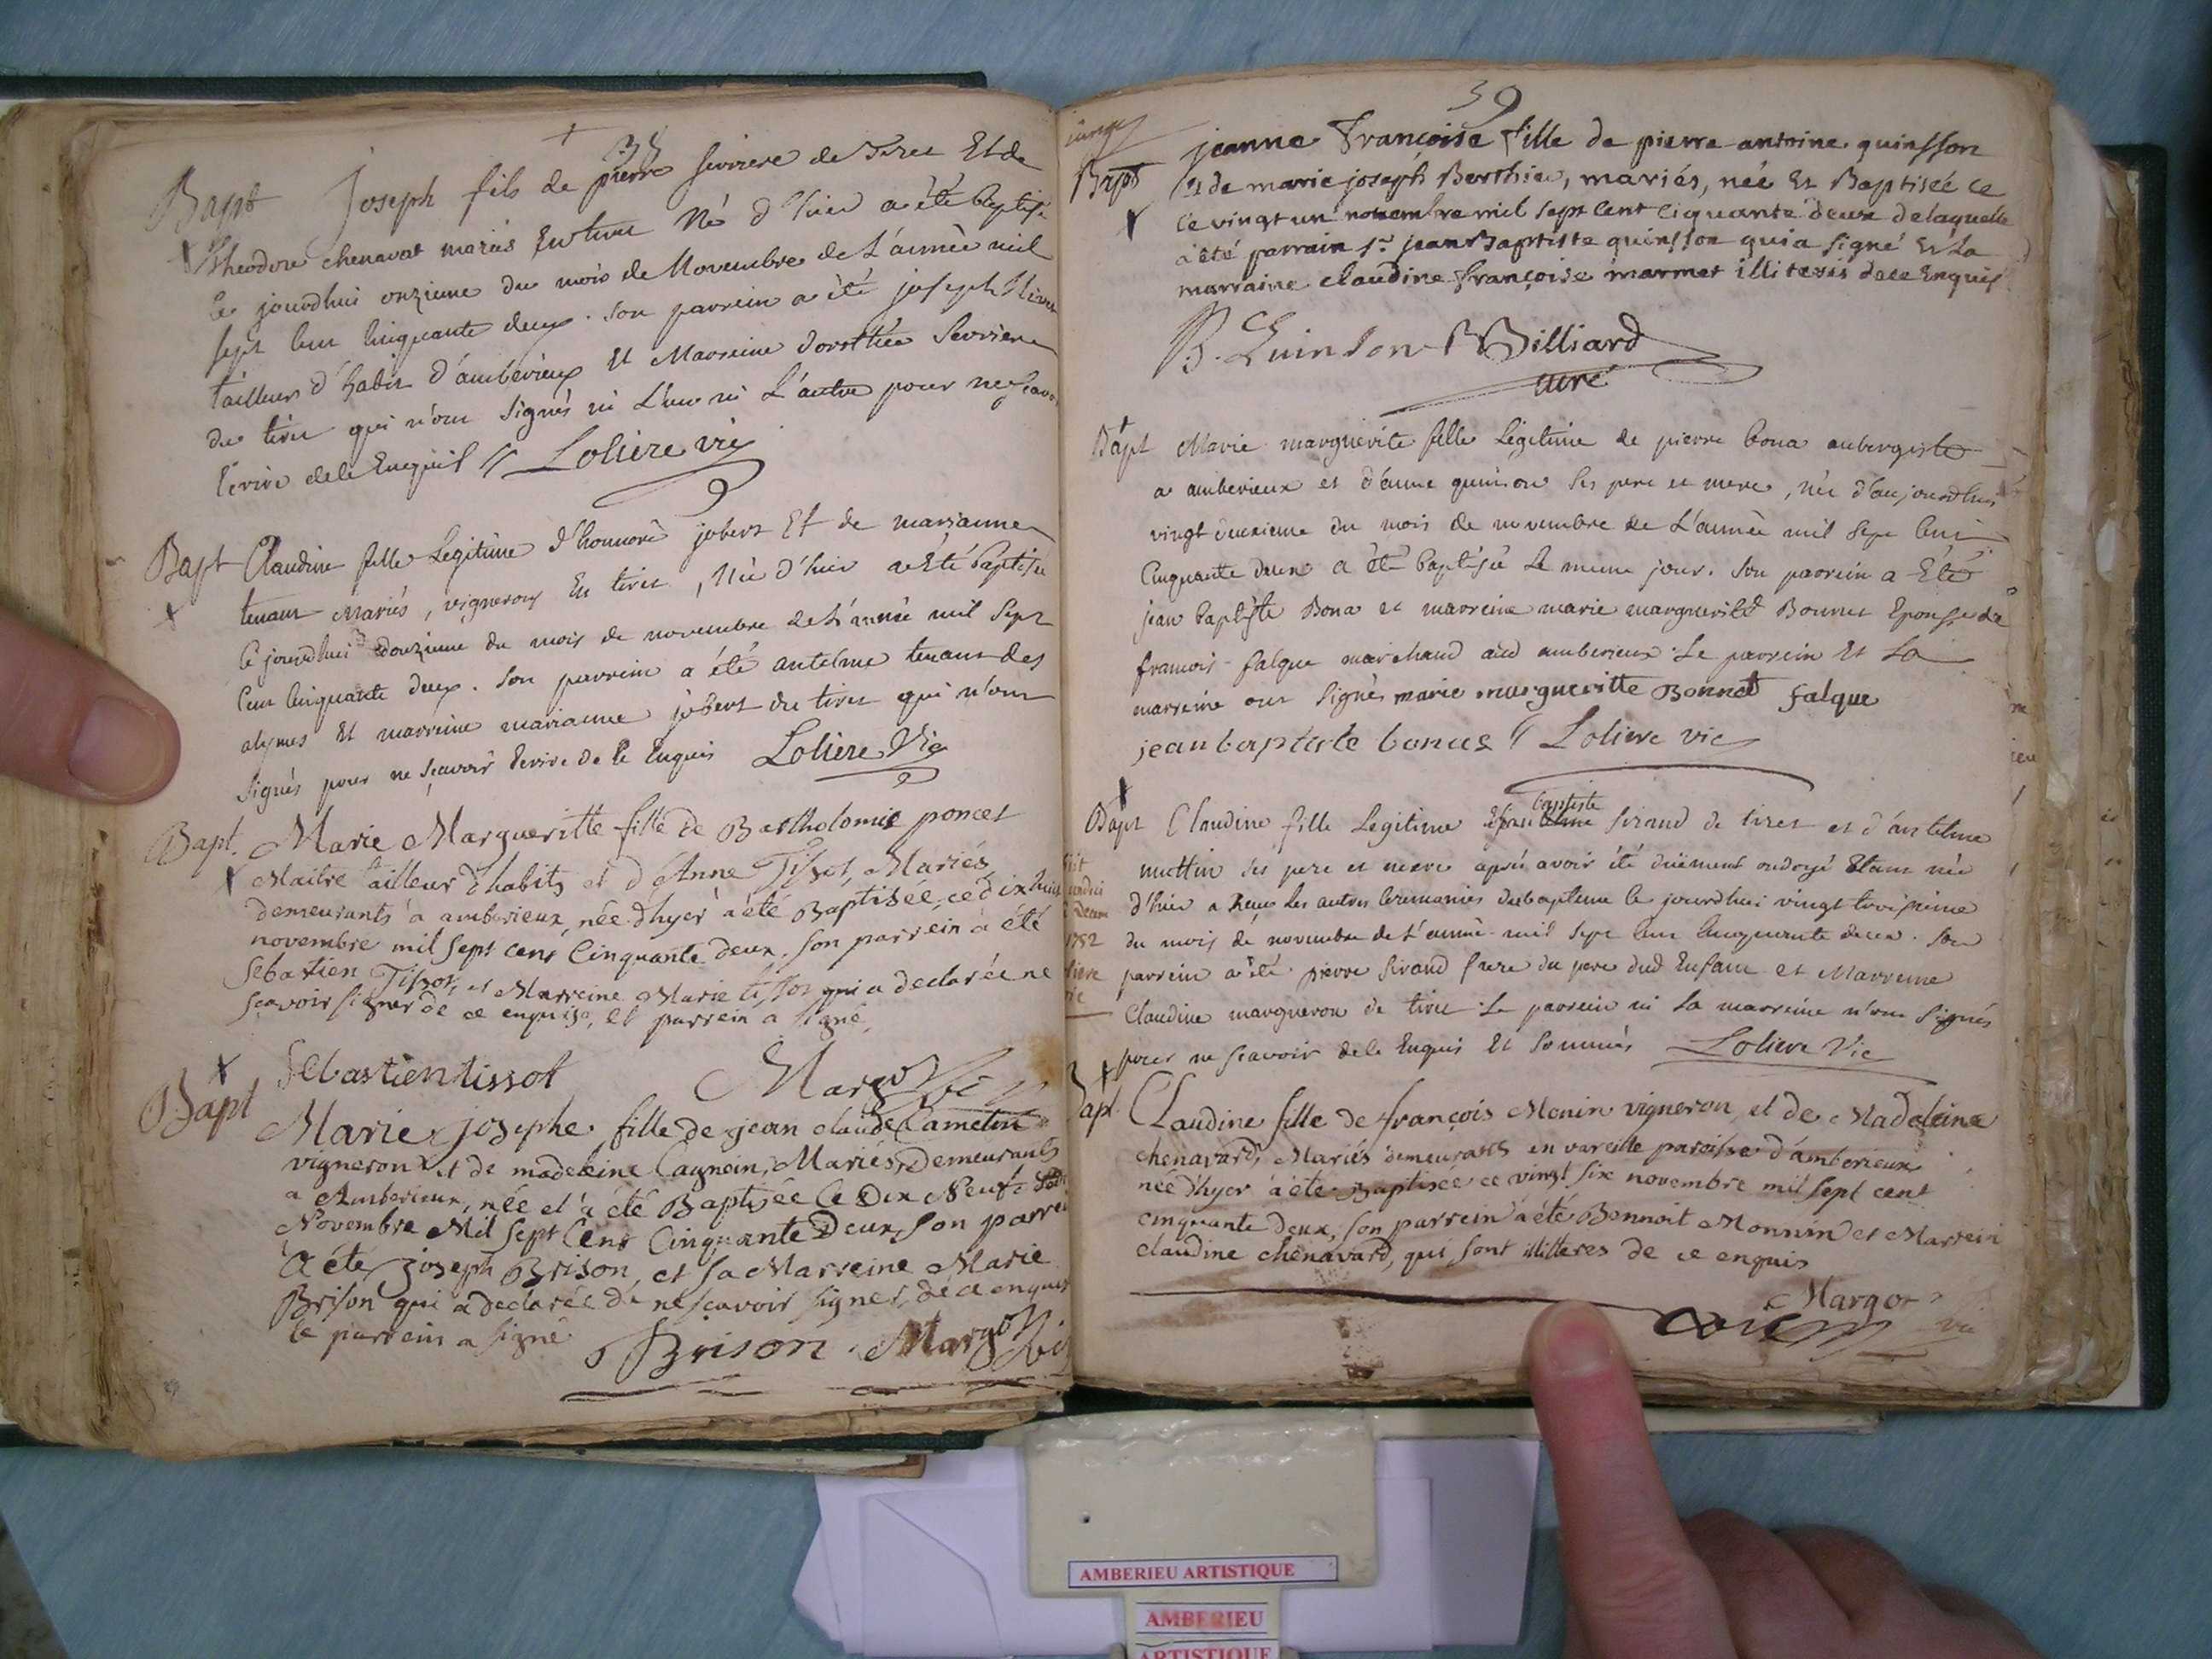 38
Bapt Joseph fils de pierre serviere de Tiret Et de
Theodore chenavat mariés En tiret Né d'hier a été baptisé
le jourdhui onzieme du mois de Novembre de L'année mil
sept cent Cinquante deux. son parrein a été joseph
tailleur d'habit d'ambérieux Et Marreine dorothée Serviere
du tiret qui n'ont Signés ni L'un ni L'autre pour ne sçavoir
Ecrire de ce Enquis Loliere vic
Bapt Claudine fille Legitime d'honnoré jobert Et de marianne
tenant Mariés, vignerons En tiret, Née d'hier a Eté baptisée
le jourdhui douzieme du mois de novembre de L'année mil Sept
Cent Cinquante deux. Son parrein a été antelme tenant des
alymes Et marreine marianne jobert du tiret qui n'ont
Signés pour ne sçavoir Ecrire de ce Enquis Loliere Vic
Bapt. Marie Margueritte fille de Bartholomie poncet
Maitre tailleur d'habits et d'Anne Tissot, Mariés
demeurants à amberieux, née d'hyer à été Baptisée, ce dix huit
novembre mil sept cens Cinquante deux. son parrein à été
Sebastien Tissot, et Marreine Marie tissot qui a declarée ne
sçavoir signer de ce enquise, et parrein a signé,
Sebastien tissot Margot vic
Bapt Marie josephe fille de jean claude Cametin
vigneron et de madeleine Cagnein, Mariés, Demeurants
a Amberieux, née et à été Baptisée le Dix Neuf
Novembre Mil Sept Cens Cinquante Deux, son parrein
A été joseph Brison, et sa Marreine Marie
Brison qui a declarée de ne sçavoir signer, de ce enquis
le parrein a signé Brison Margot vic
39
Bapt jeanne Françoise fille de pierre antoine quinsson
et de marie joseph Berthier, mariés, née et Baptisée ce
ce vingt un novembre mil sept cent ciquante deux de laquelle
a été parrain sr jean Baptiste quinsson qui a signé et la
marraine claudine françoise marmet illiterés de ce Enquis
B. Quinson Billiard
curé
Bapt Marie marguerite fille Légitime de pierre bona aubergiste
a amberieux et d'anne quinson ses pere et mere, née d'aujourdhui
vingt deuxieme du mois de novembre de L'année mil sept cent
Cinquante deux a été baptisée Le meme jour. Son parrein a Eté
jean baptiste Bona et marreine marie marguerite Bonnet Epouse de
francois falque marchand aud amberieux. Le parrein Et La
marreine ont Signés marie margueritte Bonnet falque
jean baptiste bonas Loliere vic
Bapt Claudine fille Legitime baptiste Sirand de tiret et d'antelme
muttin ses pere et mere après avoir été duement ondoyé Etant née
d'hier a Reçu Les autres Ceremonies du bapteme le jourdhui vingt troisieme
du mois de novembre de L'année mil sept cent Cinquante deux. Son
parrein a été pierre Sirand frere du pere dud Enfant et Marreine
Claudine margueron de tiret. Le parrein ni La marreine n'ont Signés
pour ne sçavoir de ce Enquis Et Sommés Loliere Vic
1752
Bapt Claudine fille de françois Monin vigneron, et de Madeleine
chenavard, Mariés demeurants en vareille paroisse d'amberieux
née d'hyer à été Baptisée ce vingt six novembre mil sept cent
cinquante deux, son parrein à été Bennoit Monnin et Marreine
claudine chenavard, qui sont illitteres de ce enquis
Margot
vic
AMBERIEU ARTISTIQUE
AMBERIEU
ARTISTIQUE